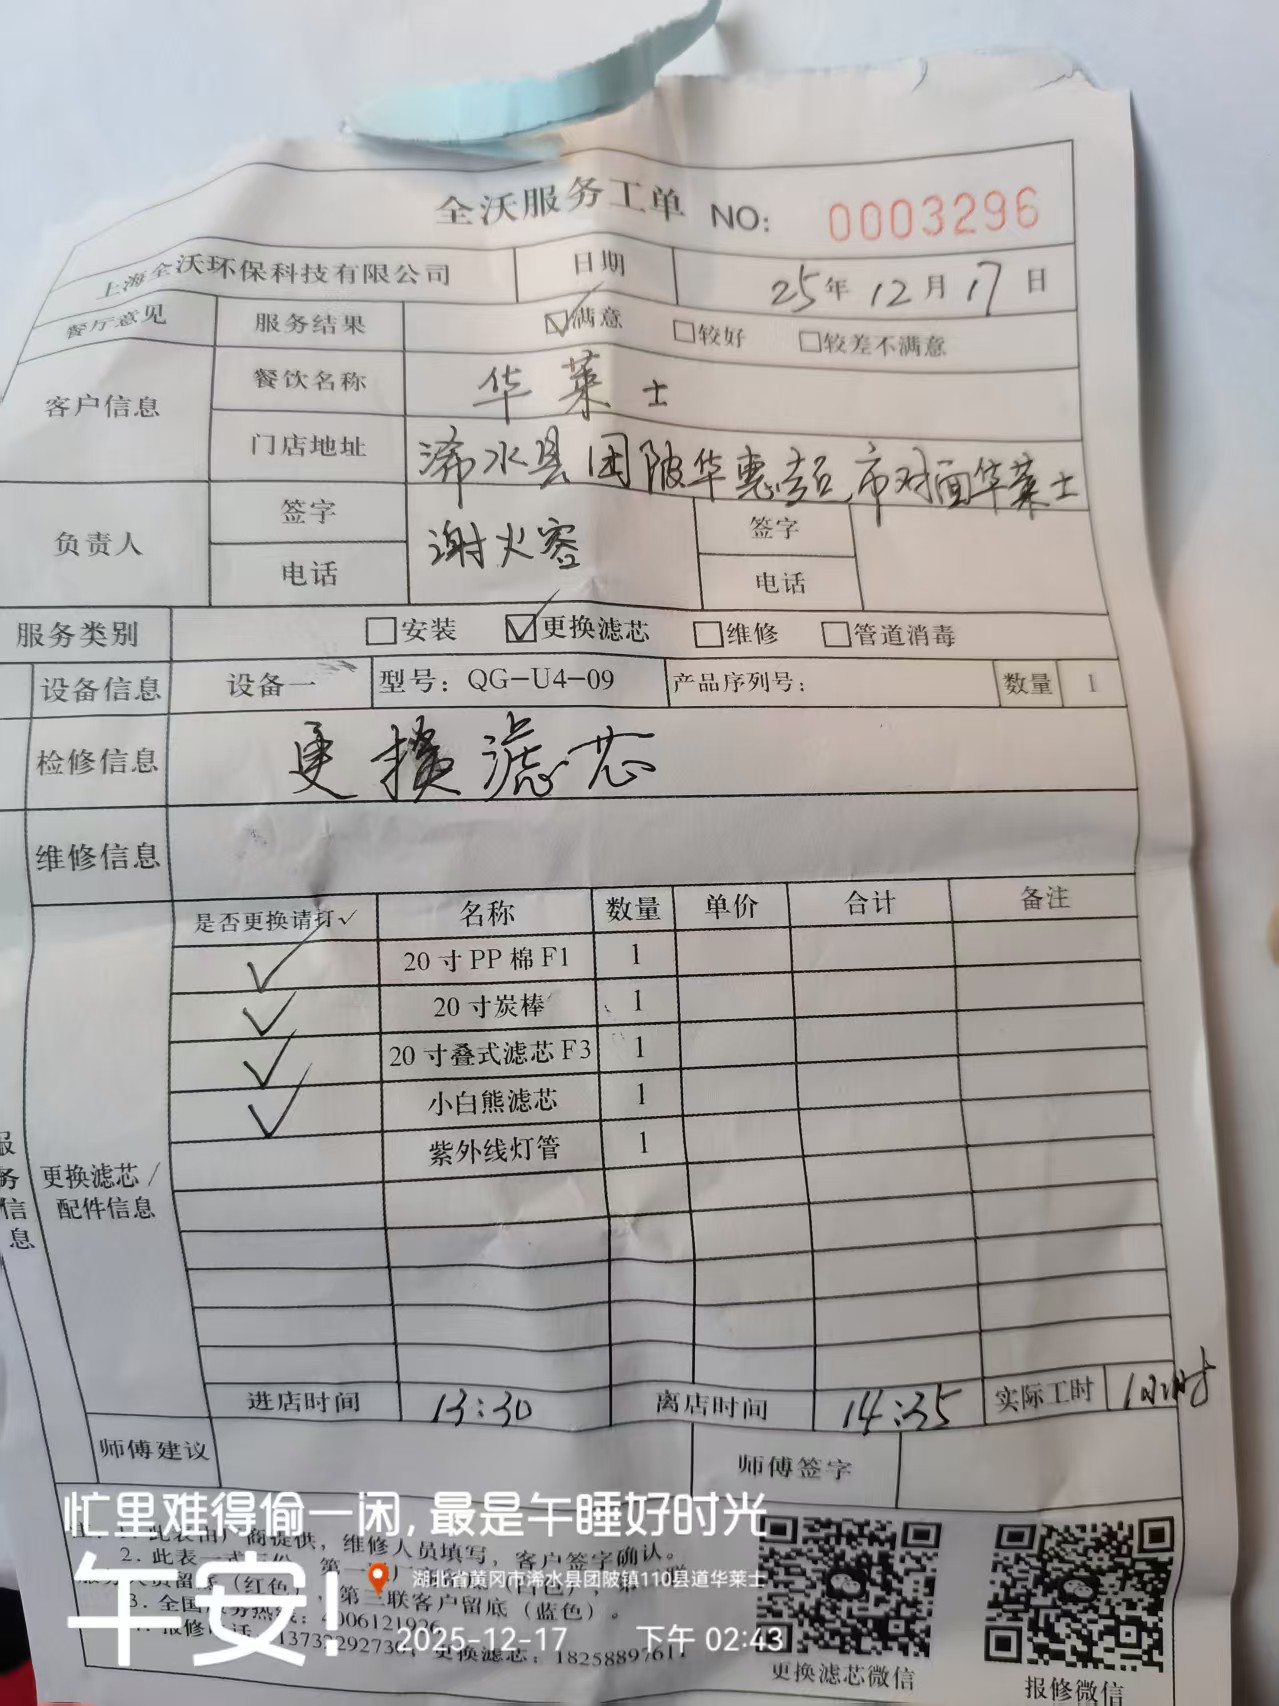 全沃服务工单 NO: 0003296
上海全沃环保科技有限公司 日期 25年12月17日
餐厅意见 服务结果 ☑满意 □较好 □较差不满意
客户信息 餐饮名称 华莱士
门店地址 浠水县团陂华惠超市对面华莱士
负责人 签字 谢火容 签字
电话 电话
服务类别 □安装 ☑更换滤芯 □维修 □管道消毒
设备信息 设备一 型号：QG-U4-09 产品序列号： 数量 1
检修信息 更换滤芯
维修信息
服务信息
更换滤芯/配件信息
是否更换请打✓ 名称 数量 单价 合计 备注
✓ 20寸PP棉F1 1
✓ 20寸炭棒 1
✓ 20寸叠式滤芯F3 1
✓ 小白熊滤芯 1
紫外线灯管 1
进店时间 13:30 离店时间 14:35 实际工时 1小时
师傅建议 师傅签字
忙里难得偷一闲，最是午睡好时光
商提供，维修人员填写，客户签字确认。
2. 此表一式
第三联客户留底（蓝色）。
3. 全国
更换滤芯：
午安！
湖北省黄冈市浠水县团陂镇110县道华莱士
2025-12-17 下午 02:43
更换滤芯微信 报修微信